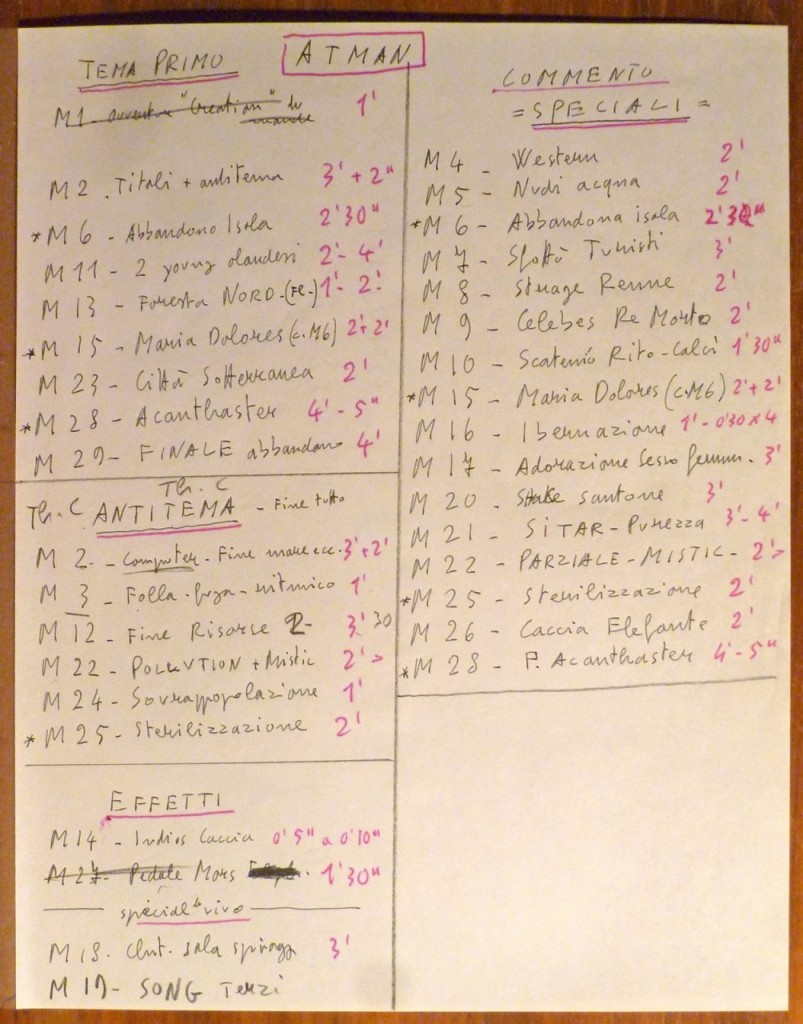 ATMAN
TEMA PRIMO
M1 "Creation" 1'
M 2. Titoli + antitema 3' + 2"
* M 6 - Abbandono Isola 2'30"
M 11 - 2 young olandesi 2'- 4'
M 13 - Foresta NORD-(FE-) 1'- 2'
* M 15 - Maria Dolores (c.M6) 2'+ 2'
M 23 - Città Sotterranea 2'
* M 28 - Acanthaster 4' - 5"
M 29 - FINALE abbandono 4'
Th. C
Th. C ANTITEMA - Fine tutto
M 2 - Computer - Fine mare ecc. 3'+ 2'
M 3 - Folla - fuga - ritmico 1'
M 12 - Fine Risorse 2 - 3' 30
M 22 - POLLUTION + Mistic 2' >
M 24 - Sovrappopolazione 1'
* M 25 - Sterilizzazione 2'
EFFETTI
M 14 - Indios Caccia 0'5" a 0'10"
M 27 - Pedale Mors 1'30"
speciale vivo
M 18. sola spiaggia 3'
M 19 - SONG Terzi
COMMENTO
= SPECIALI =
M 4 - Western 2'
M 5 - Nudi acqua 2'
* M 6 - Abbandona isola 2'30"
M 7 - Sfottò Turisti 3'
M 8 - Strage Renne 2'
M 9 - Celebes Re Morto 2'
M 10 - Scatenio Rito - Calci 1'30"
* M 15 - Maria Dolores (c.M6) 2'+ 2'
M 16 - Ibernazione 1' - 0'30 x 4
M 17 - Adorazione Sesso femm. 3'
M 20 - santone 3'
M 21 - SITAR - Purezza 3'- 4'
M 22 - PARZIALE - MISTIC - 2' >
* M 25 - Sterilizzazione 2'
M 26 - Caccia Elefante 2'
* M 28 - P. Acanthaster 4'- 5"